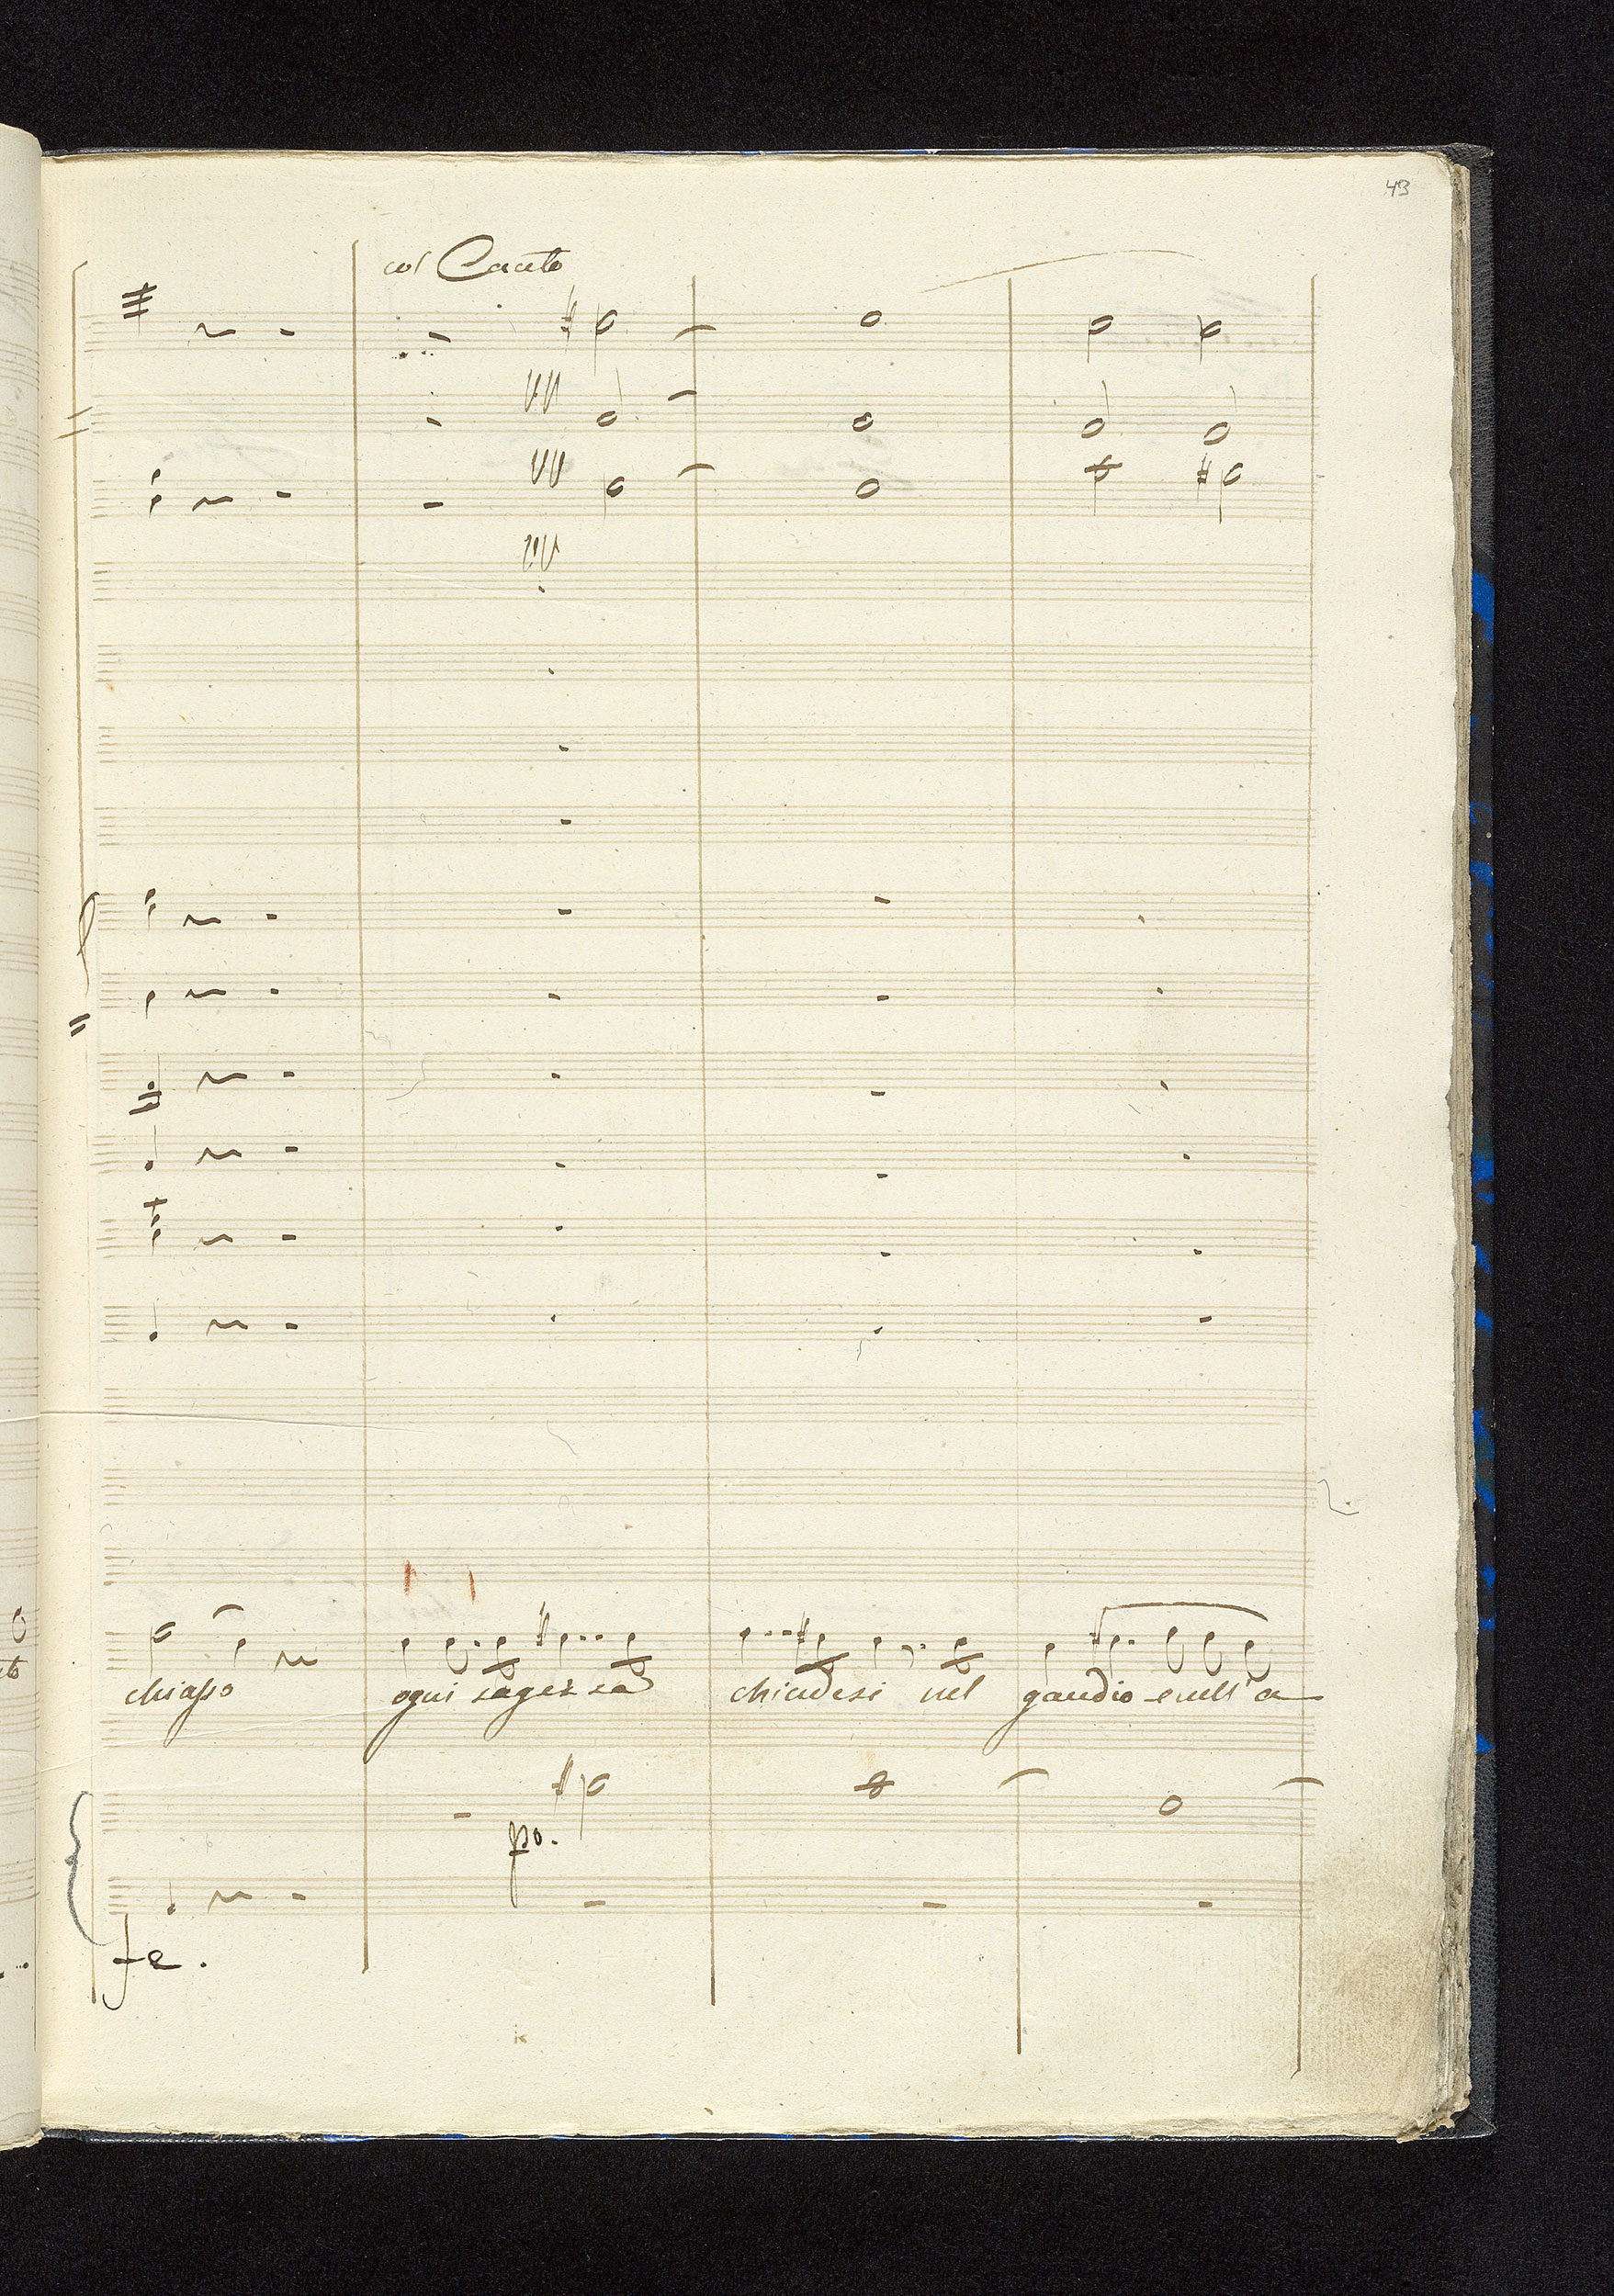 43
col Canto
chiasso ogni sagezza chiudesi nel gaudio e nell'a
po.
fe.